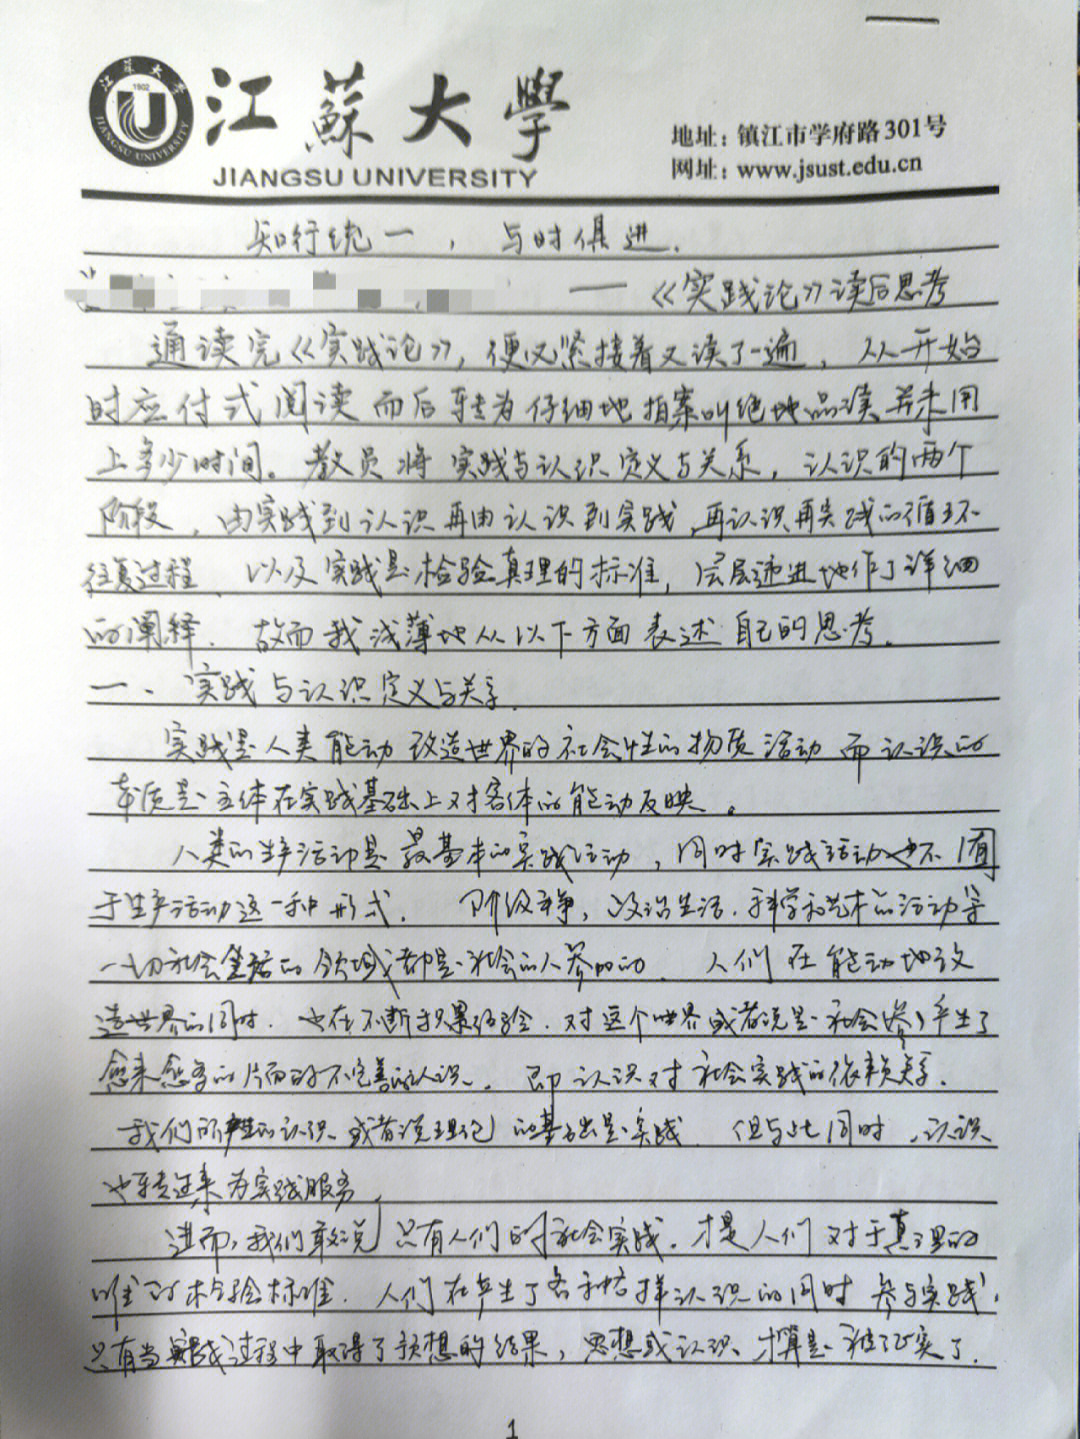 江苏大学
1902
JIANGSU UNIVERSITY
江蘇大學
JIANGSU UNIVERSITY
地址：镇江市学府路301号
网址：www.jsust.edu.cn
知行统一，与时俱进.
——《实践论》读后思考
通读完《实践论》，便又紧接着又读了一遍，从开始
时应付式阅读而后转为仔细地拍案叫绝地品读并未用
上多少时间。教员将实践与认识定义与关系，认识的两个
阶段，由实践到认识再由认识到实践，再认识再实践的循环
往复过程，以及实践是检验真理的标准，层层递进地作了详细
的阐释. 故而我浅薄地从以下方面表述自己的思考.
一、实践与认识定义与关系.
实践是人类能动改造世界的社会性的物质活动而认识的
本质是主体在实践基础上对客体的能动反映。
人类的生产活动是最基本的实践活动，同时实践活动也不囿
于生产活动这一种形式. 阶级斗争，政治生活.科学和艺术的活动等
一切社会生活的领域都是社会的人参加的. 人们在能动地改
造世界的同时. 也在不断积累经验. 对这个世界或者说是社会产生了
愈来愈多的片面的不完善的认识. 即认识对社会实践的依赖关系.
我们所产生的认识 或者说理论的基础是实践 但与此同时，认识
也转过来为实践服务.
进而，我们敢说只有人们的社会实践. 才是人们对于真理的
唯一检验标准. 人们在产生了各种各样认识的同时参与实践.
只有当实践过程中取得了预想的结果，思想或认识才算是被证实了.
1